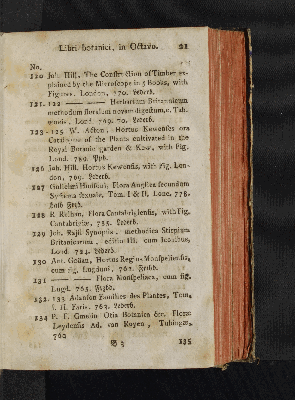 Libri botanici, in Octavo. 21
No.
120 Joh. Hill, The Construction of Timber ex-
plained by the Microscope in 5 Books, with
Figures, London, 770. Lederb.
121. 122 Herbarium Britannicum
methodum floralem novam digestum, c. Tab.
Lond. 769. 70. Lederb.
123-125 W. Aiton, Hortus Kewensis ora
Catalogue of the Plants cultivated in the
Royal Botanic garden & Kew, with Fig.
Lond. 789. Ppb.
126 Joh. Hill. Hortus Kewensis, with Fig. Lon-
don, 769. Lederb.
127 Gulielmi Hudsoni, Flora Anglica secundum
Systema sexuale, Tom. I & II. Lond. 778.
Halb Frzb.
128 R. Relhan, Flora Cantabrigiensis, with Fig.
Cantabrigiae, 785. Lederb.
129 Joh. Raji Synopsis, methodica Stirpium
Britannicarum, editio III. cum Iconibus,
Lond 724. Lederb.
130 Ant. Gouan, Hortus Regius Monspeliensis,
cum fig. Lugduni, 762. Frzbb.
131 Flora Monspeliaca, cum fig.
Lugd. 765. Frzbb.
132. 133 Adanson Familles des Plantes, Tom.
I. II. Paris. 763. Lederb.
134 P. F. Gmelin Otia Botanica &c. Florae
Leydensis Ad. van Royen, Tubingae,
760
B 3 135